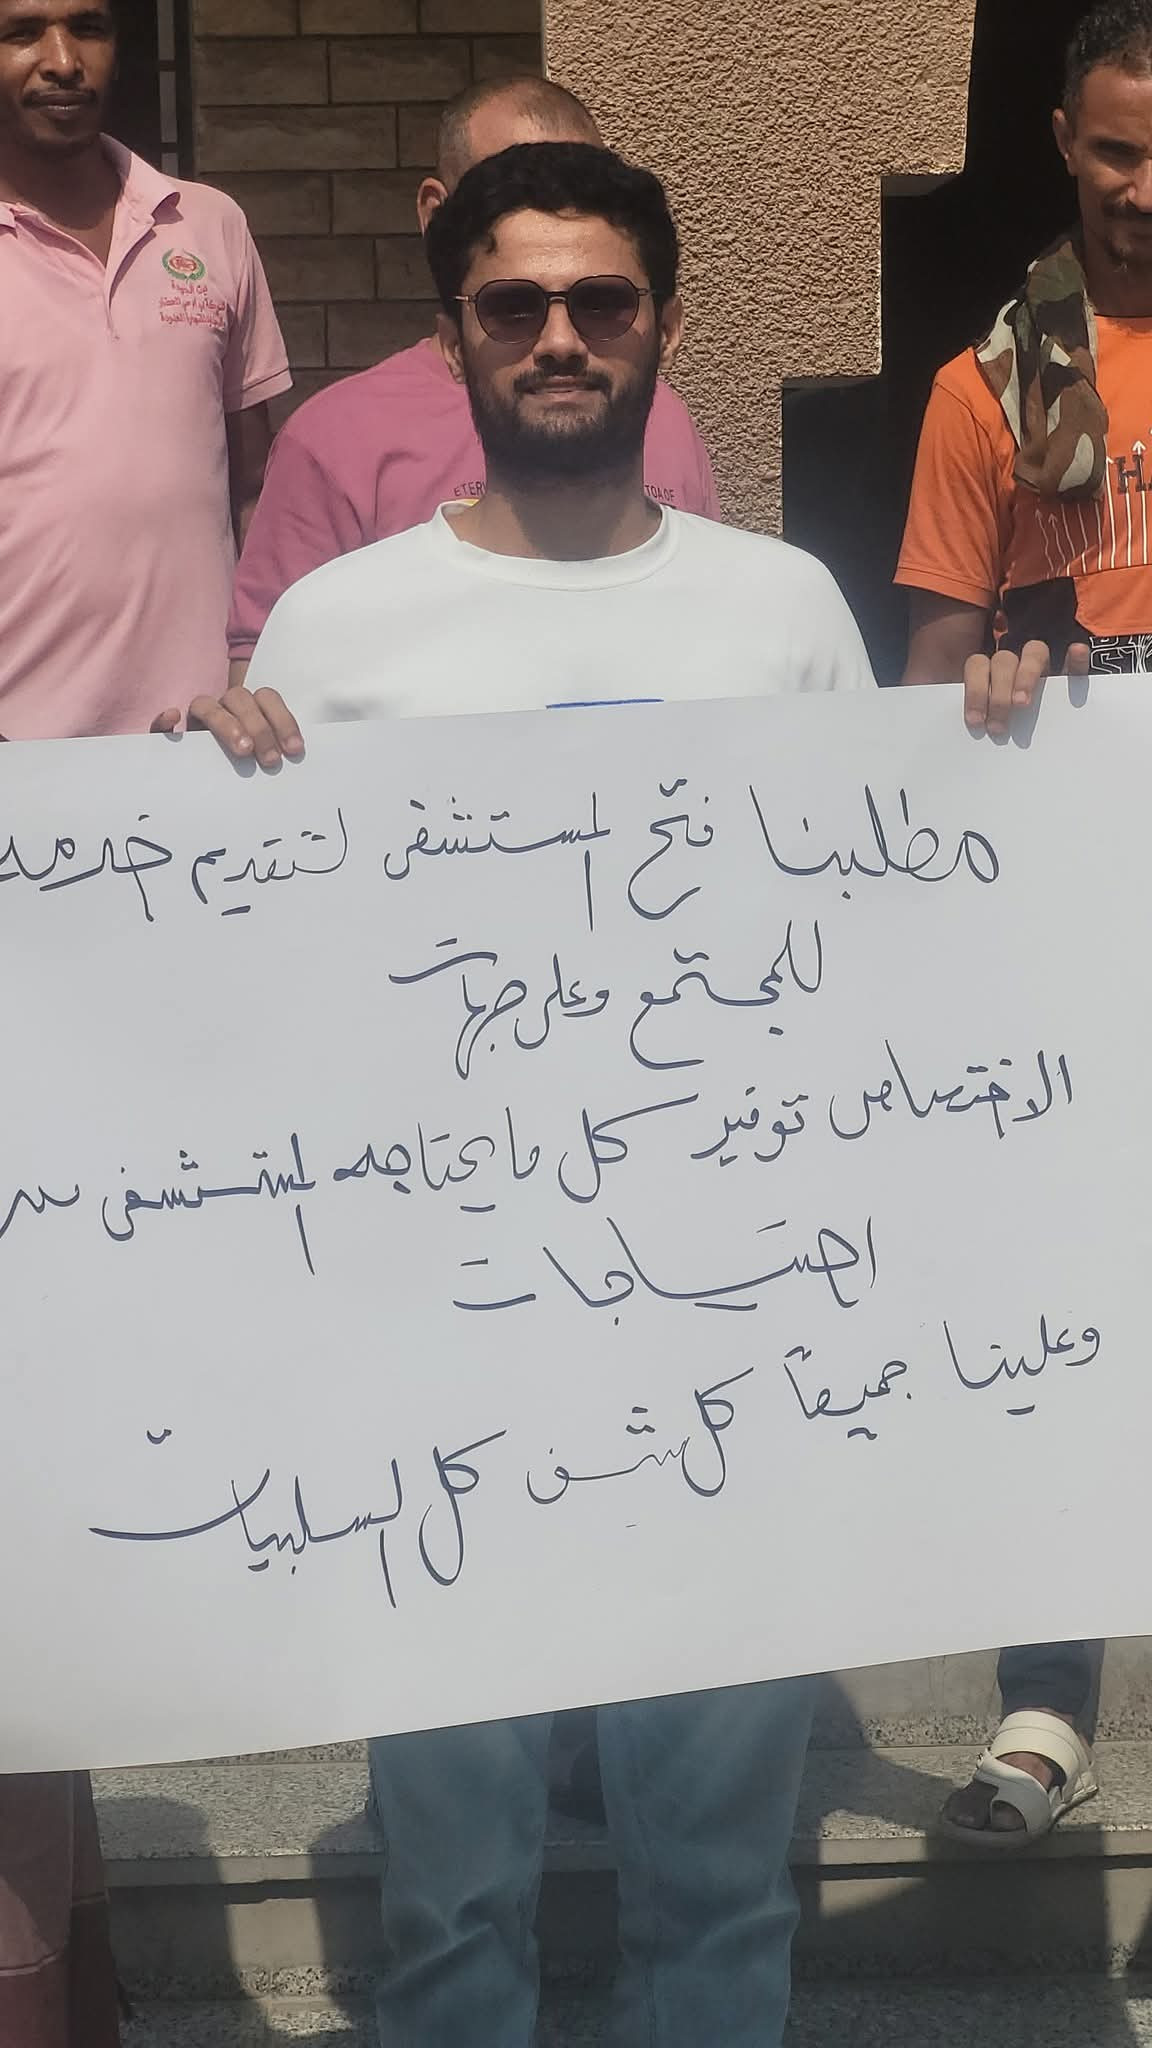 مطلبنا فتح المستشفى لتقديم خدمة
للمجتمع وعلى جهات
الاختصاص توفير كل ما يحتاجه المستشفى من
احتياجات
وعلينا جميعاً كل شف كل السلبيات
ETER
TOA OF